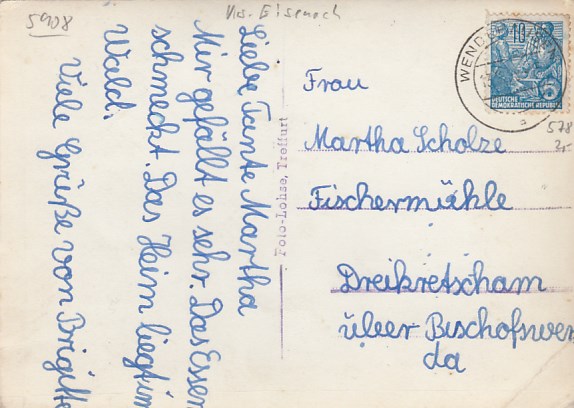 5908
Krs. Eisenach
Liebe Tante Martha
Mir gefällt es sehr. Das Essen
schmeckt. Das Heim liegt im
Wald.
Viele Grüße von Brigitte
Foto-Lohse, Treffurt
WEND
10
DEUTSCHE
DEMOKRATISCHE REPUBLIK
5
578
Frau
Martha Scholze
Fischermühle
Dreikretscham
über Bischofswer
da